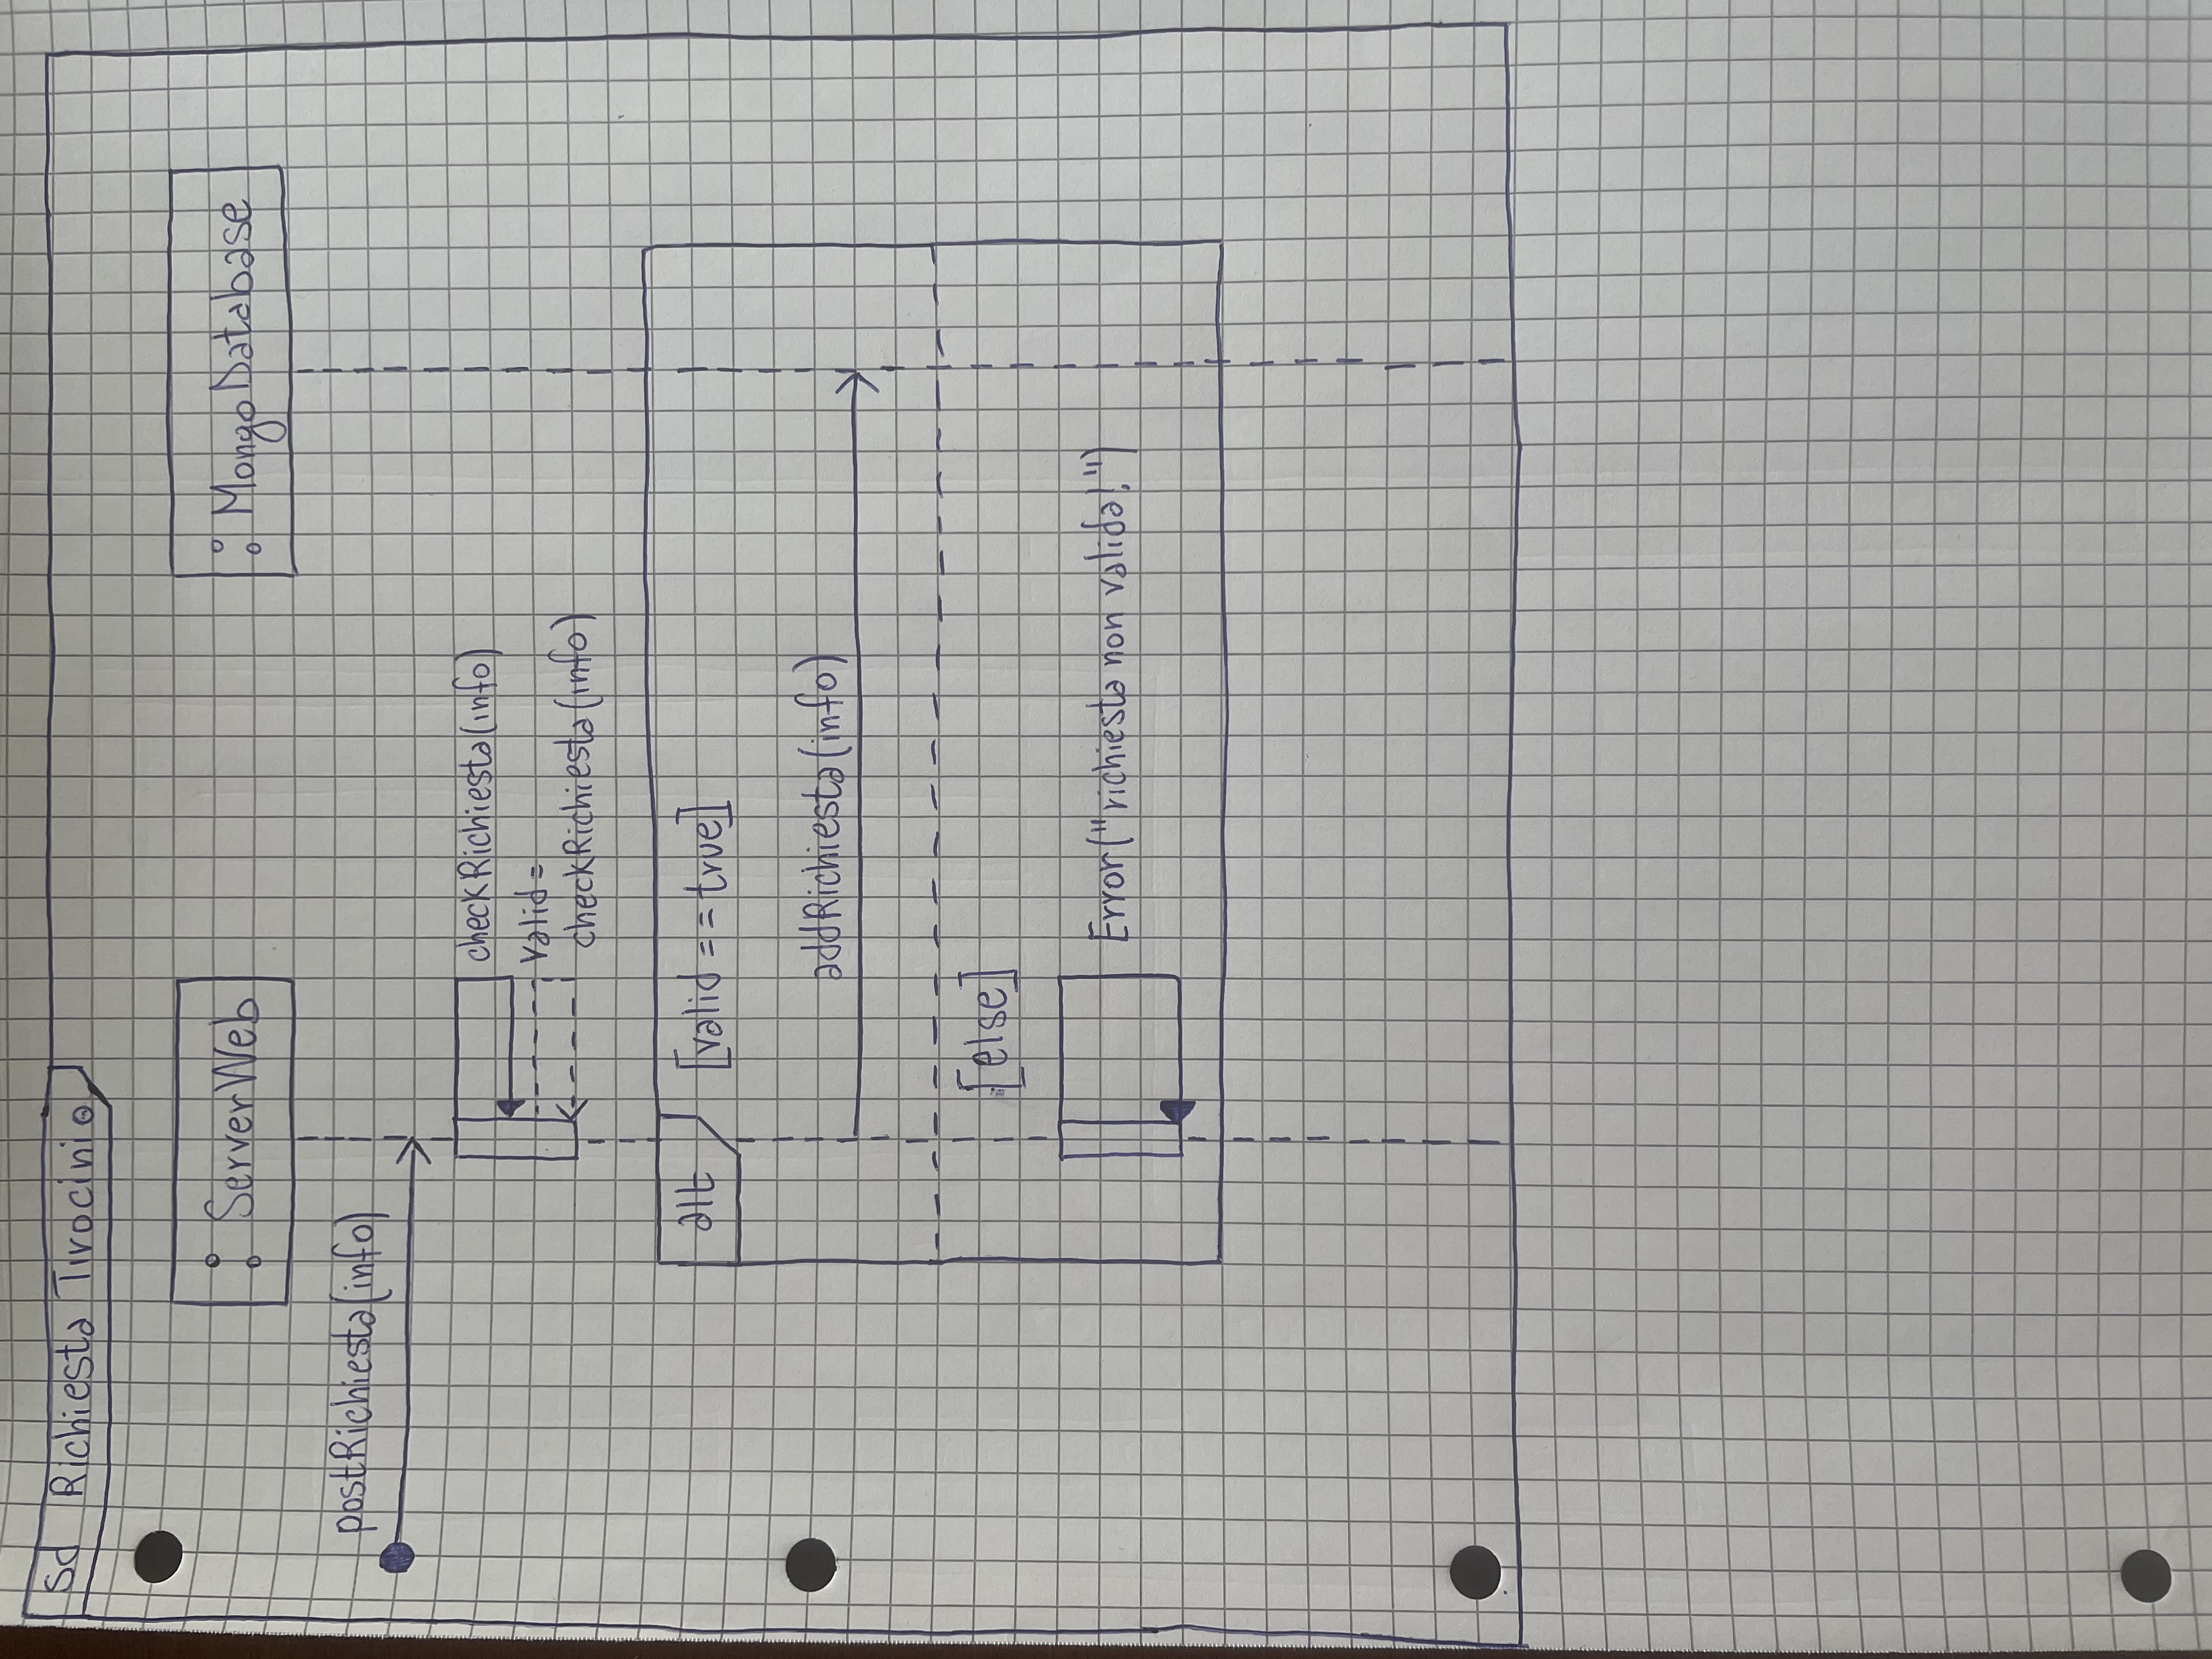 sd Richiesta Tirocinio
: ServerWeb
: MongoDatabase
postRichiesta(info)
checkRichiesta(info)
valid =
checkRichiesta(info)
alt [valid == true]
addRichiesta(info)
[else]
Error("richiesta non valida!")